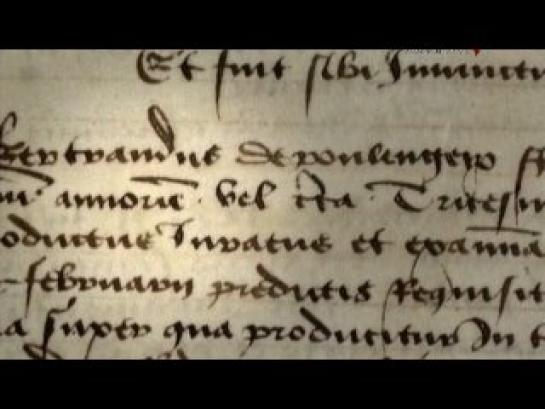 Et fuit sibi Iniunctu
Bertrandus de poulengeyo
annorū vel cr̄ca Tricesim
oductus Iuratus et examīa
februarii predictis Requisit
a super qua producitur In t